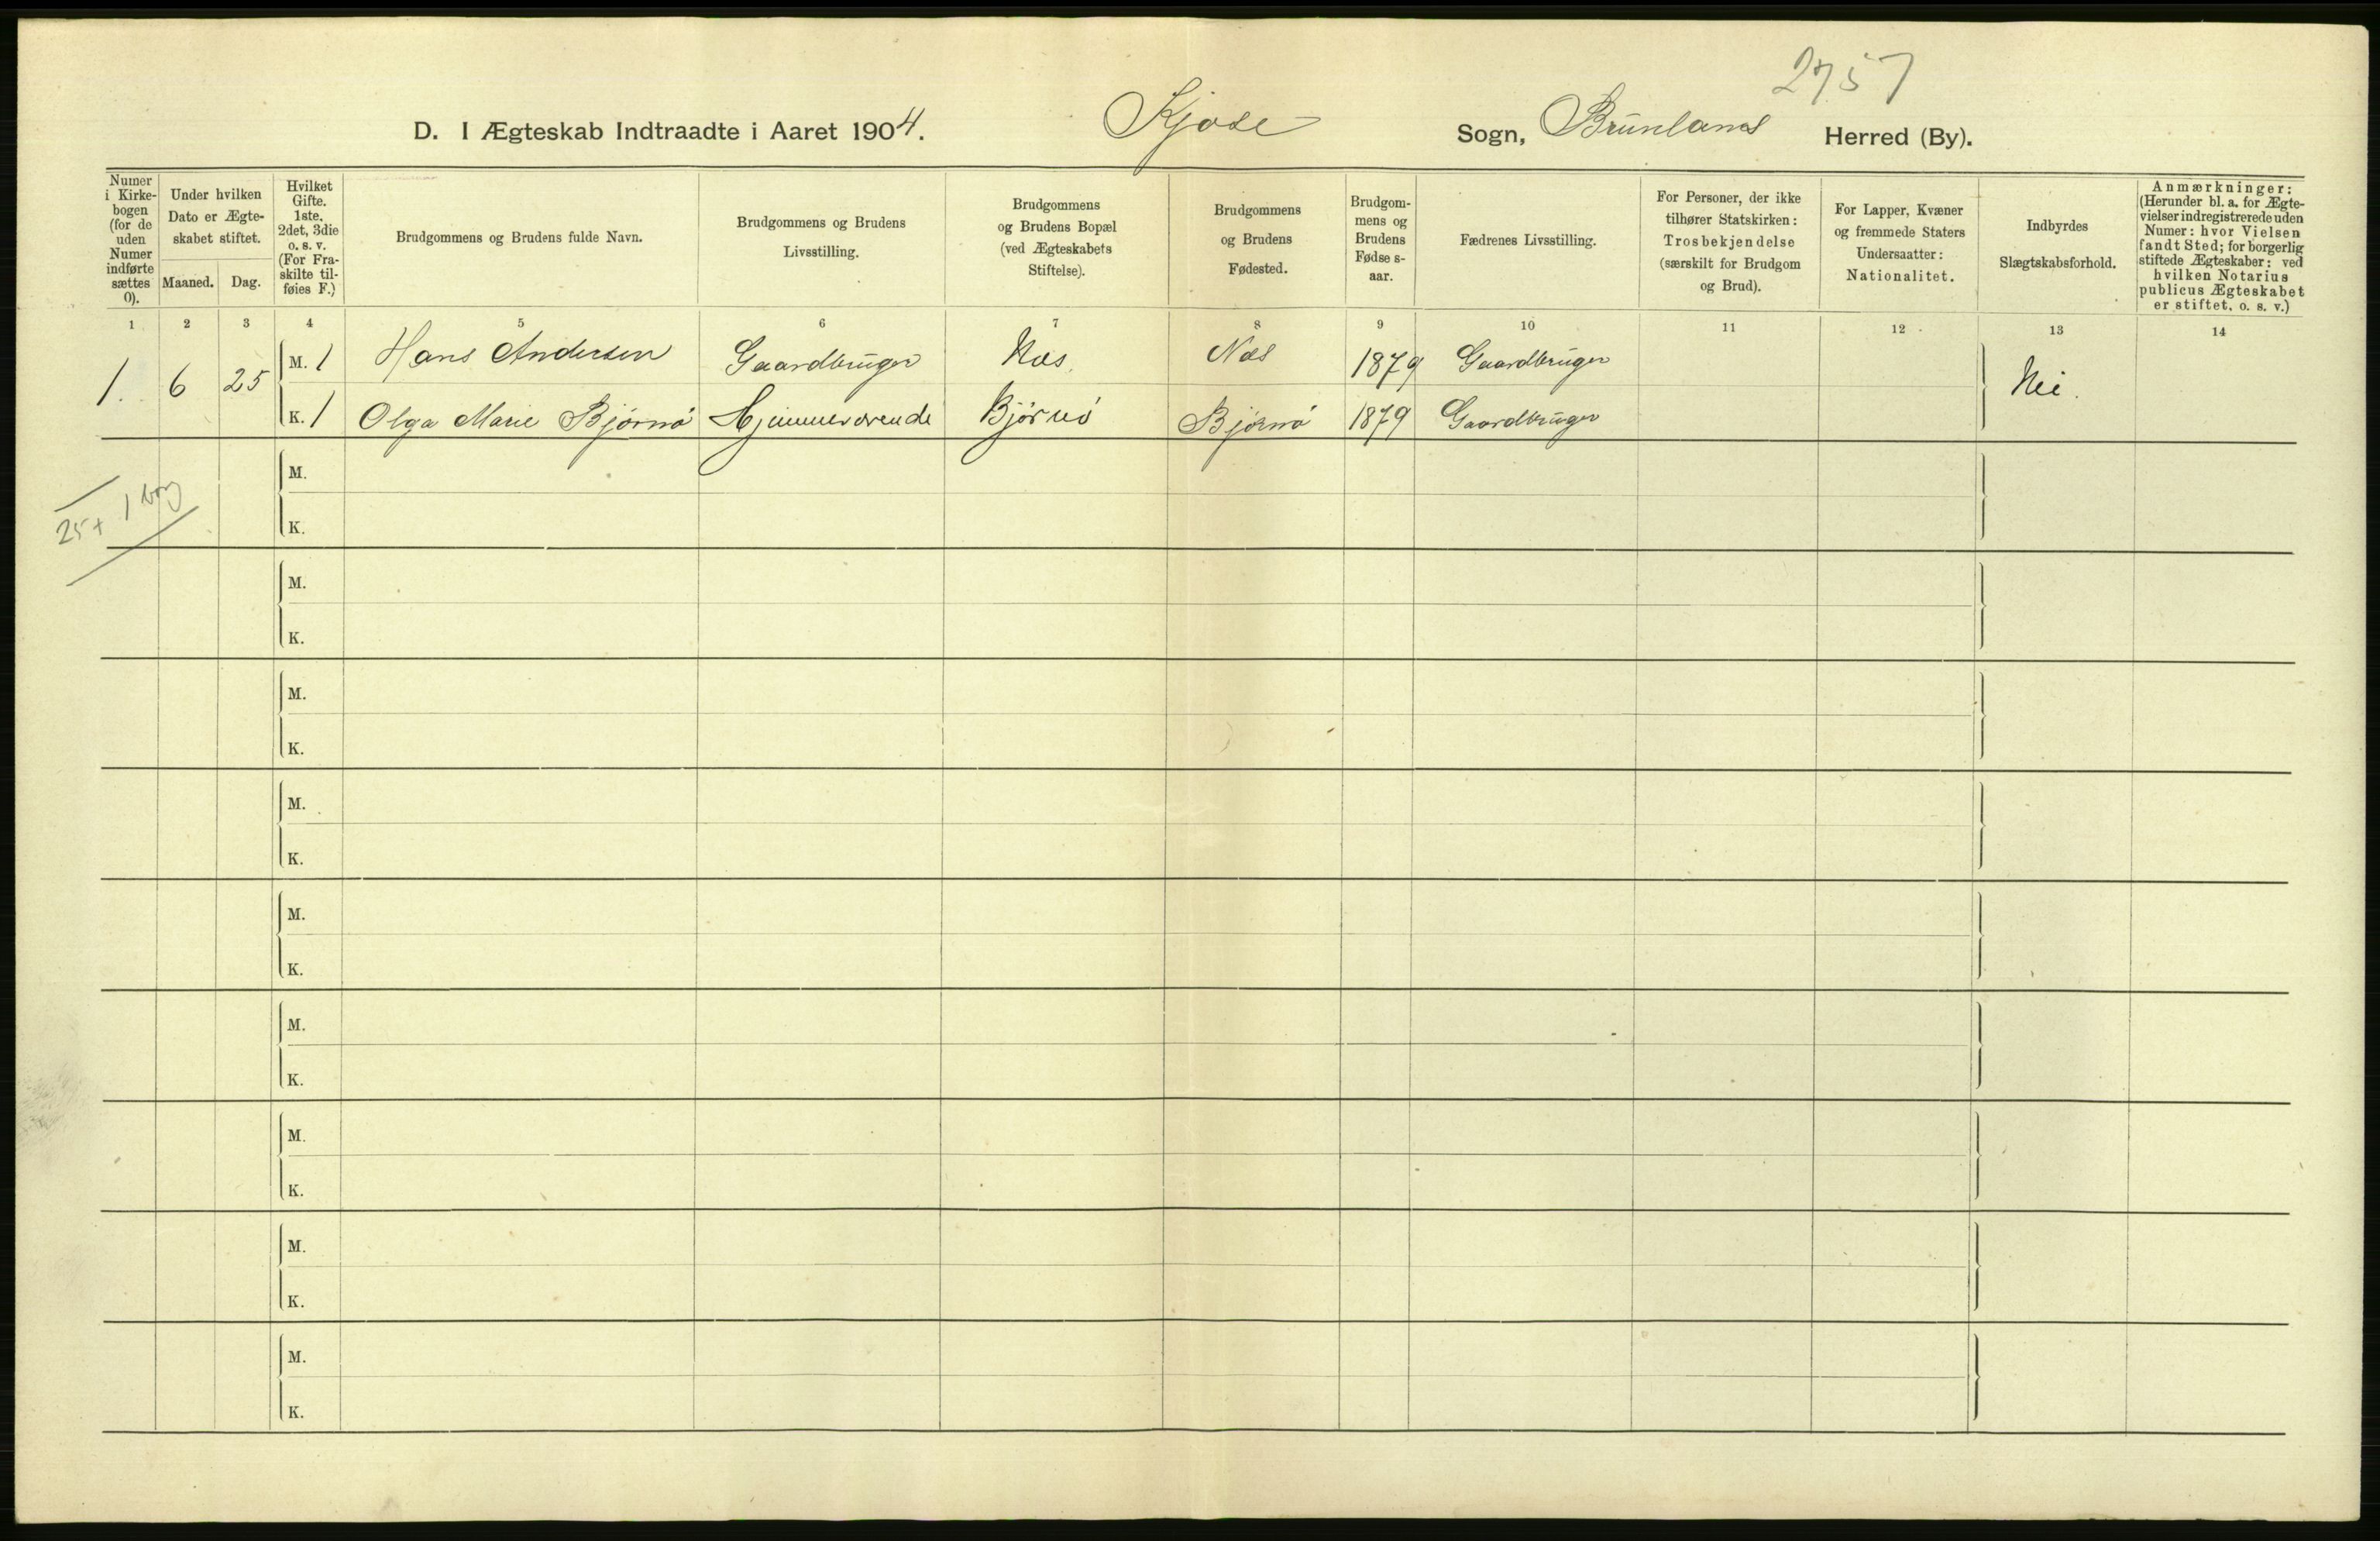 2757
D. I Ægteskab Indtraadte i Aaret 1904. Kjose Sogn, Brunlanes Herred (By).
Numer i Kirkebogen (for de uden Numer indførte sættes 0).
Under hvilken Dato er Ægteskabet stiftet.
Maaned. Dag.
Hvilket Gifte. 1ste. 2det, 3die o. s. v. (For Fraskilte tilføies F.)
Brudgommens og Brudens fulde Navn.
Brudgommens og Brudens Livsstilling.
Brudgommens og Brudens Bopæl (ved Ægteskabets Stiftelse).
Brudgommens og Brudens Fødested.
Brudgommens og Brudens Fødse s-aar.
Fædrenes Livsstilling.
For Personer, der ikke tilhører Statskirken: Trosbekjendelse (særskilt for Brudgom og Brud).
For Lapper, Kvæner og fremmede Staters Undersaatter: Nationalitet.
Indbyrdes Slægtskabsforhold.
Anmærkninger: (Herunder bl. a. for Ægtevielser indregistrerede uden Numer: hvor Vielsen fandt Sted; for borgerlig stiftede Ægteskaber: ved hvilken Notarius publicus Ægteskabet er stiftet, o. s. v.)
1 2 3 4 5 6 7 8 9 10 11 12 13 14
1. 6 25 M. 1 Hans Andersen Gaardbruger Næs Næs 1879 Gaardbruger Nei.
K. 1 Olga Marie Bjørnø Hjemmeværende Bjørnø Bjørnø 1879 Gaardbruger
M.
25+
K.
M.
K.
M.
K.
M.
K.
M.
K.
M.
K.
M.
K.
M.
K.
M.
K.